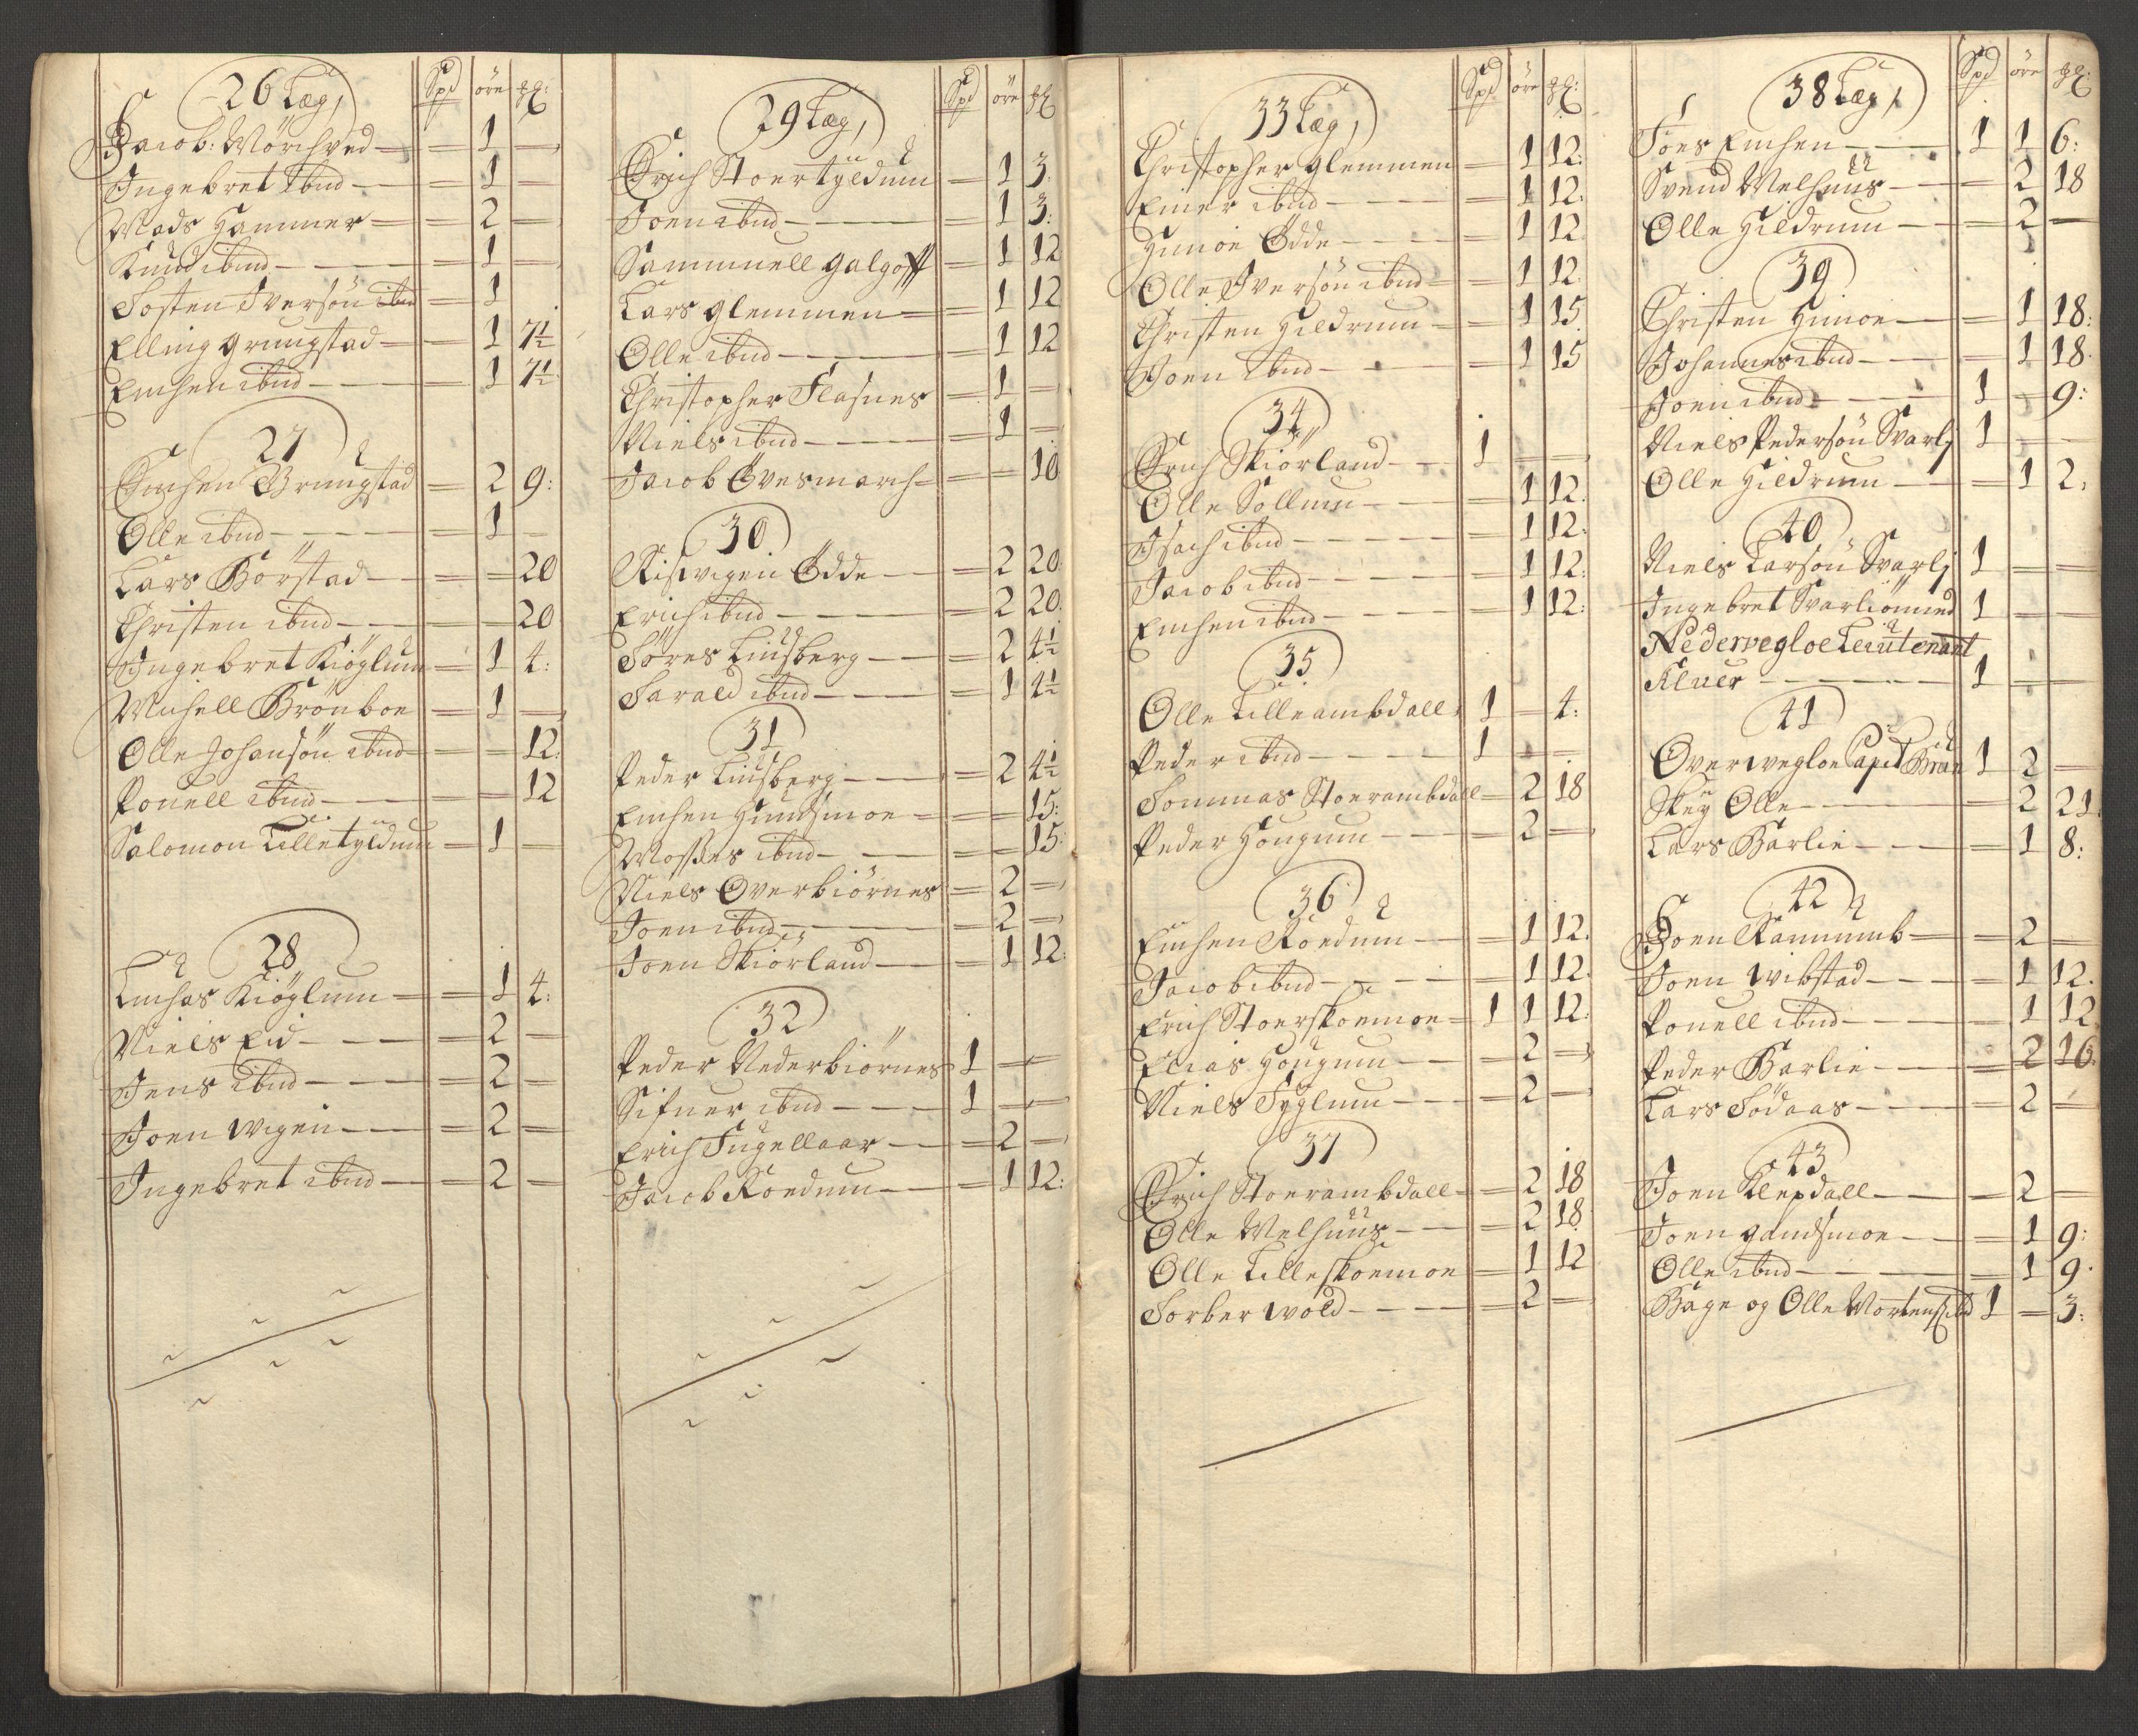 26 Læg,
Spd öre
Jacob: Mörchved — — 1 —
Ingebret ibnd — — 1 —
Mads Hammer — 2 —
Knud ibnd — — 1 —
Tosten Iversön ibnd — 1
Elling Grungstad — — 1 7½
Emhen ibnd — — 1 7½
27
Emhen Grungstad — 2 9:
Olle ibnd — — 1 —
Lars Börstad — — — 20
Christen ibnd — — — 20
Ingebret Kiöglum — 1 4:
Michell Brönboe — 1 —
Olle Johansön ibnd — — 12:
Pouell ibnd — — — 12
Salomon Lilletyldum — 1 —
28
Luchas Kiöglum — — 1 4:
Niels Eid — — 2 —
Jens ibnd — — 2 —
Joen Wigen — — 2 —
Ingebret ibnd — — 2 —
29 Læg,
Spd öre
Erich Stoertyldum — 1 3
Joen ibnd — — 1 3:
Sammuell Galgoft — 1 12
Lars Glemmen — 1 12
Olle ibnd — — 1 12
Christopher Flasnes — 1 —
Niels ibnd — — 1 —
Jacob Övesmarch — — — 10
30
Risvigen Ödde — — 2 20
Erich ibnd — — 2 20:
Töres Liusberg — — 2 4½
Tarald ibnd — — 1 4½
31
Peder Liusberg — — 2 4½
Emhen Hundsmoe — — — 15:
Mosses ibnd — — — 15:
Niels Overbiörnes — 2 —
Joen ibnd — — 2 —
Joen Skiörland — — 1 12:
32
Peder Nederbiörnes 1 — —
Sifuer ibnd — — 1 — —
Erich Fugellaar — — 2 —
Jacob Roedum — — 1 12:
33 Læg,
Spd öre
Christopher Glemmen — 1 12:
Einer ibnd — — 1 12:
Himoe Ödde — — 1 12
Olle Iversön ibnd — 1 12:
Christen Hildrum — — 1 15
Joen ibnd — — 1 15
34
Erich Skiörland — — 1 — —
Olle Sollum — — 1 12:
Isach ibnd — — 1 12:
Jacob ibnd — — 1 12:
Emhen ibnd — — 1 12:
35
Olle Lilleambdall 1 — 4:
Peder ibnd — — 1 — —
Tommas Stoerambdall — 2 18
Peder Hougum — — 2 —
36
Emhen Roedum — — 1 12:
Jacob ibnd — — 1 12:
Erich Stoerskoemoe — 1 1 12:
Elias Hougum — — 2 —
Niels Fyglum — — 2 —
37
Erich Stoerambdall — — 2 18
Olle Melhuus — — 2 18
Olle Lilleskoemoe — 1 12
Torber Wold — — 2 —
38 Læg,
Spd öre
Joes Emhen — — 1 1 6:
Svend Melhuus — — 2 18
Olle Hildrum — — 2 —
39
Christen Himoe — — 1 18:
Johannes ibnd — — 1 18
Joen ibnd — — 1 — 9:
Niels Pedersön Svarlj 1 — —
Olle Hildrum — — 1 2.
40
Niels Larsön Svarlj 1 — —
Ingebret Svarliönned 1 — —
Nedervegloe Leiutenant
Kluer — — 1 — —
41
Overwegloe Capit Brun 1 2 —
Skey Olle — — 2 21
Lars Barlie — — 1 8:
42
Joen Rammumb — — 2 —
Joen Wibstad — — 1 12.
Pouell ibnd — — 1 12
Peder Barlie — — 2 16.
Lars Södaas — — 2 —
43
Joen Klepdall — — 2 —
Joen Gandsmoe — — 1 9:
Olle ibnd — — 1 9.
Bage og Olle Mortens ibd 1 — 3: